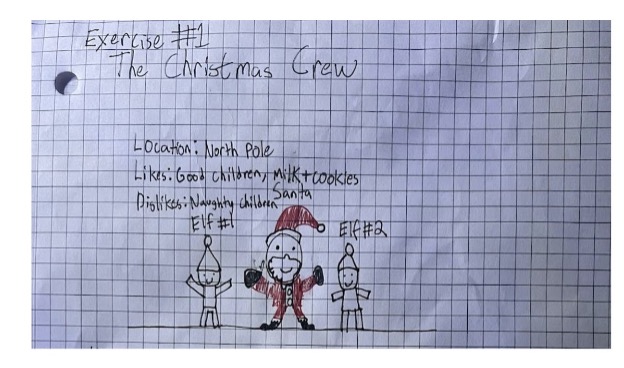 Exercise #1
The Christmas Crew
Location: North Pole
Likes: Good children, Milk+cookies
Dislikes: Naughty children
Santa
Elf #1
Elf #2